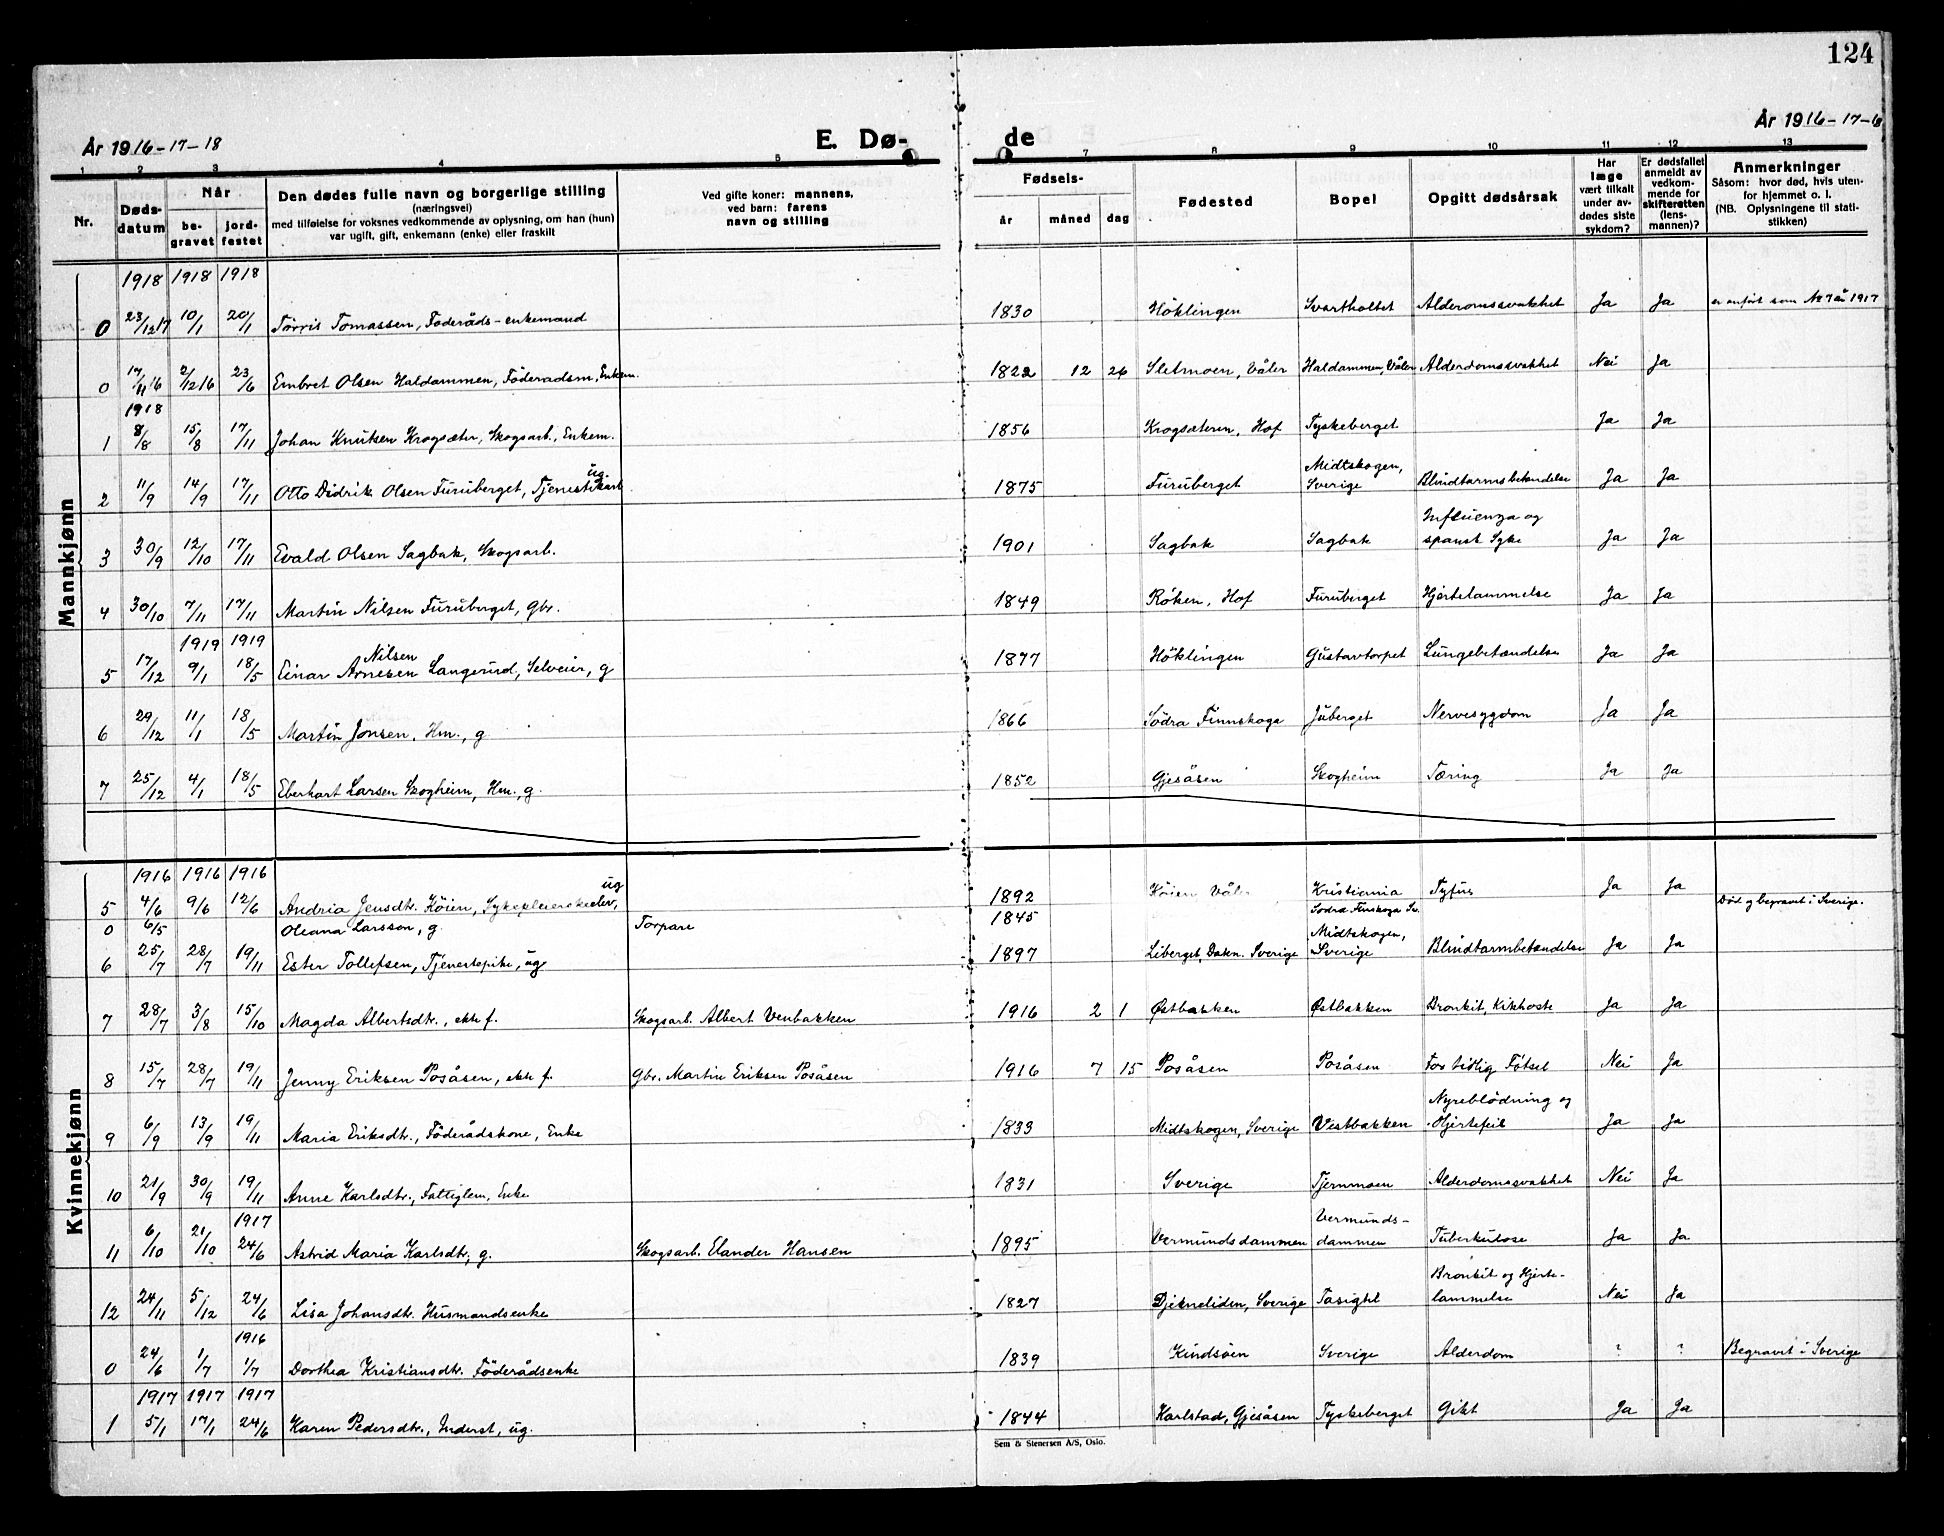 124
År 1916-17-18
E. Dø-
de
År 1916-17-18
1 2 3 4 5 7 8 9 10 11 12 13
Nr.
Døds-
datum
Når
be-
gravet
jord-
festet
Den dødes fulle navn og borgerlige stilling
(næringsvei)
med tilføielse for voksnes vedkommende av oplysning, om han (hun)
var ugift, gift, enkemann (enke) eller fraskilt
Ved gifte koner: mannens,
ved barn: farens
navn og stilling
Fødsels-
år måned dag
Fødested
Bopel
Opgitt dødsårsak
Har
læge
vært tilkalt
under av-
dødes siste
sykdom?
Er dødsfallet
anmeldt av
vedkom-
mende for
skifteretten
(lens-
mannen)?
Anmerkninger
Såsom: hvor død, hvis uten-
for hjemmet o. l.
(NB. Oplysningene til stati-
stikken)
Mannkjønn
1918 1918 1918
0 23/12 17 10/1 20/1 Torris Tomassen, Føderåds-enkemand 1830 Höklingen Svartholtet Alderomssvakhet Ja Ja er anført som Nr 7 år 1917
0 17/11 16 2/12 16 23/6 Embret Olsen Haldammen, Föderadsm, Enkem. 1822 12 26 Sletmoen, Våler Haldammen, Våler Alderdomssvakhet Nei Ja
1918
1 8/8 15/8 17/11 Johan Knutsen Krogsæter, Skogsarb., Enkem. 1856 Krogsæteren, Hof Tyskeberget Ja Ja
2 11/9 14/9 17/11 Otto Didrik Olsen Furuberget, Tjenestkarl ug. 1875 Furuberget Midtskogen, Sverige Blindtarmsbetændelse Ja Ja
3 30/9 12/10 17/11 Evald Olsen Sagbak, Skogsarb. 1901 Sagbak Sagbak Influenza og spansk Syke Ja Ja
4 30/10 7/11 17/11 Martin Nilsen Furuberget, gbr. 1849 Röken, Hof Furuberget Hjertelammelse Ja Ja
1919 1919
Nilsen
5 17/12 9/1 18/5 Einar Arnesen Langerud, Selveier, g 1877 Höklingen Gustavtorpet Lungebetændelse Ja Ja
6 29/12 11/1 18/5 Martin Jonsen, Hm., g. 1866 Södra Finnskoga Juberget Nervesygdom Ja Ja
7 25/12 4/1 18/5 Eberhart Larsen Skogheim, Hm., g. 1852 Gjesåsen Skogheim Tæring Ja Ja
Kvinnekjønn
1916 1916 1916
5 4/6 9/6 12/6 Andria Jensdtr. Köien, Sykepleierskeelev, ug 1892 Köien Våler Kristiania Tyfus Ja Ja
0 6/5 Oleana Larsson, g. Torpare 1845 Södra Finskoga Sv. Død og begravet i Sverige.
6 25/7 28/7 19/11 Ester Tollefsen, Tjenestepike, ug 1897 Liberget, Dakn. Sverige Midtskogen, Sverige Blindtarmbetændelse Ja Ja
7 28/7 3/8 15/10 Magda Albertsdtr., ekte f. Skogsarb. Albert Venbakken 1916 2 1 Østbakken Østbakken Bronkit, Kikhoste Ja Ja
8 15/7 28/7 19/11 Jenny Eriksen Posåsen, ekte f. Gbr. Martin Eriksen Posåsen 1916 7 15 Posåsen Posåsen For tidlig Fötsel Nei Ja
9 6/9 13/9 19/11 Maria Eriksdtr., Föderådskone, Enke 1833 Midtskogen, Sverige Vestbakken Nyreblödning og Hjertefeil Ja Ja
10 21/9 30/9 19/11 Anne Karlsdtr., Fattiglem, Enke 1831 Sverige Tjernmoen Alderdomssvakhet Nei Ja
1917
11 6/10 21/10 24/6 Astrid Maria Karlsdtr, g. Skogsarb. Elander Hansen 1895 Vermundsdammen Vermunds-dammen Tuberkulose Ja Ja
12 24/11 5/12 24/6 Lisa Johansdtr. Husmandsenke 1827 Djekneliden, Sverige Tasighl Bronkit og Hjerte-lammelse Nei Ja
1916
0 24/6 1/7 1/7 Dorthea Kristiansdtr. Föderådsenke 1839 Kindsöen Sverige Alderdom ? ? Begravet i Sverige
1917 1917 1917
1 5/1 17/1 24/6 Karen Pedersdtr., Inderst, ug. 1844 Karlstad, Gjesåsen Tyskeberget Gikt Ja Ja
Sem & Stenersen A/S, Oslo.